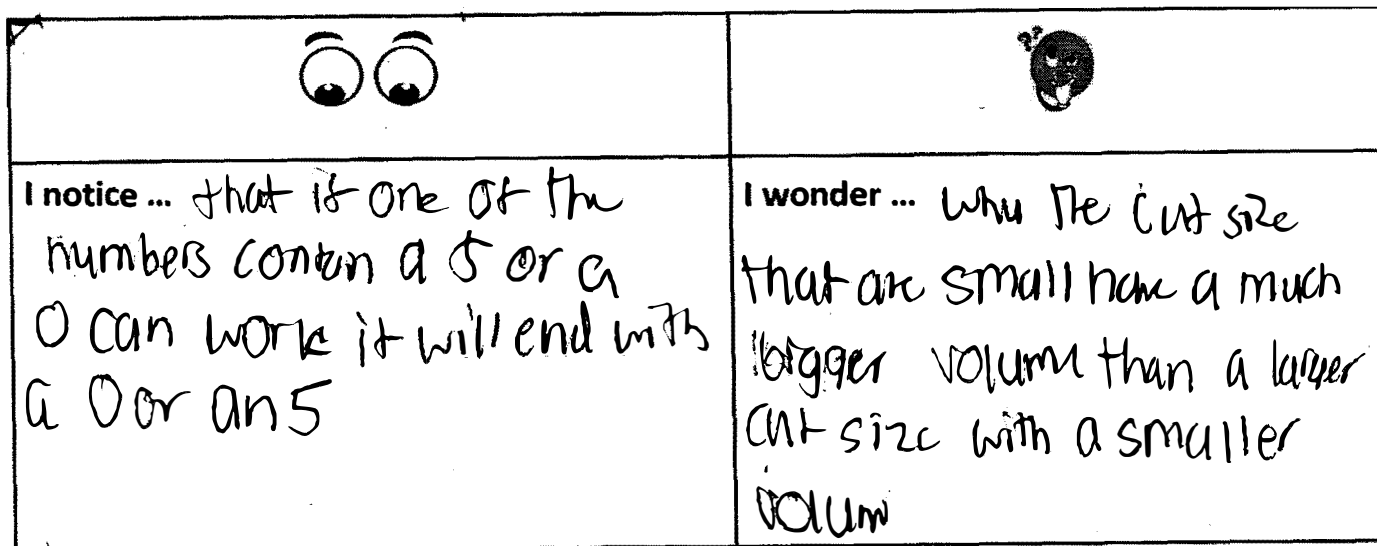 ??
I notice ... that if one of the
numbers contain a 5 or a
0 can work it will end with
a 0 or an 5
I wonder ... why the cut size
that are small have a much
bigger volume than a larger
cut size with a smaller
volum